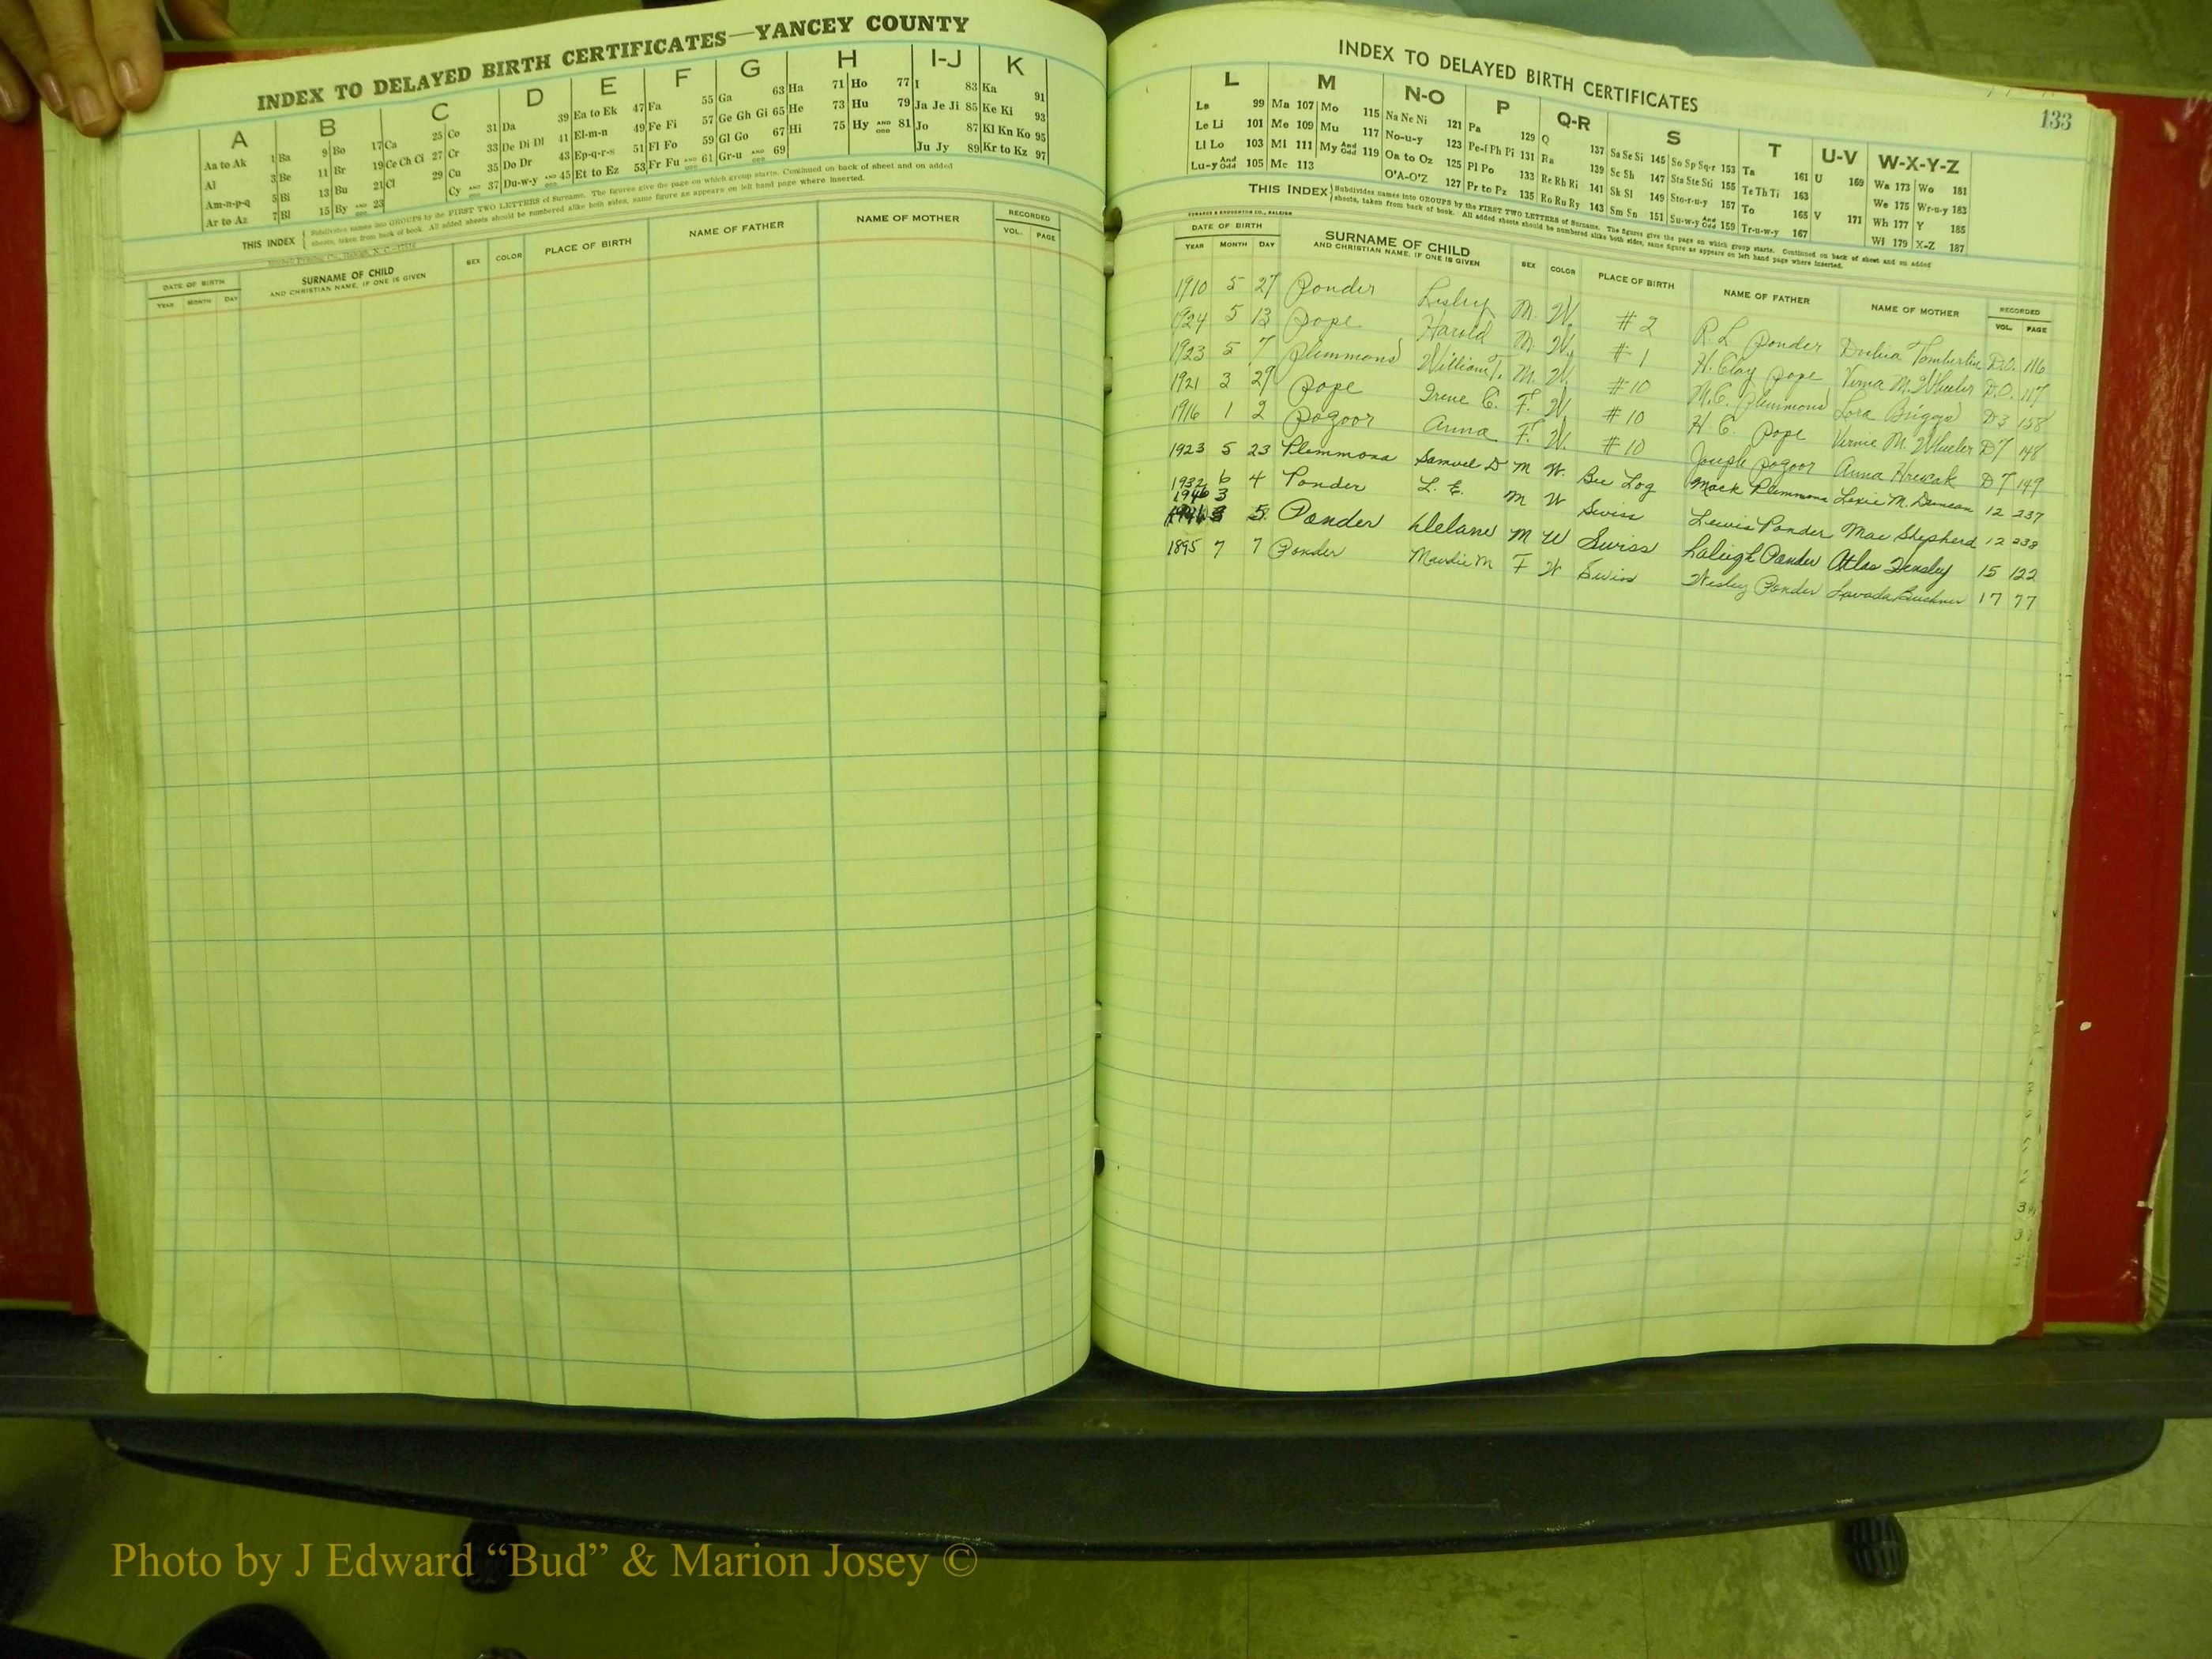 INDEX TO DELAYED BIRTH CERTIFICATES—YANCEY COUNTY
A B C D E F G H I-J K
Aa to Ak 1 Ba 9 Bo 17 Ca 25 Co 31 Da 39 Ea to Ek 47 Fa 55 Ga 63 Ha 71 Ho 77 I 83 Ka 91
Al 3 Be 11 Br 19 Ce Ch Ci 27 Cr 33 De Di Dl 41 El-m-n 49 Fe Fi 57 Ge Gh Gi 65 He 73 Hu 79 Ja Je Ji 85 Ke Ki 93
Am-n-p-q 5 Bi 13 Bu 21 Cl 29 Cu 35 Do Dr 43 Ep-q-r-s 51 Fl Fo 59 Gl Go 67 Hi 75 Hy AND ODD 81 Jo 87 Kl Kn Ko 95
Ar to Az 7 Bl 15 By AND ODD 23 Cy AND ODD 37 Du-w-y AND ODD 45 Et to Ez 53 Fr Fu AND ODD 61 Gr-u AND ODD 69 Ju Jy 89 Kr to Kz 97
THIS INDEX Subdivides names into GROUPS by the FIRST TWO LETTERS of Surname. The figures give the page on which group starts. Continued on back of sheet and on added
sheets, taken from back of book. All added sheets should be numbered alike both sides, same figure as appears on left hand page where inserted.
DATE OF BIRTH SURNAME OF CHILD SEX COLOR PLACE OF BIRTH NAME OF FATHER NAME OF MOTHER RECORDED
YEAR MONTH DAY AND CHRISTIAN NAME, IF ONE IS GIVEN VOL. PAGE
INDEX TO DELAYED BIRTH CERTIFICATES
133
L M N-O P Q-R S T U-V W-X-Y-Z
La 99 Ma 107 Mo 115 Na Ne Ni 121 Pa 129 Q 137 Sa Se Si 145 So Sp Sq-r 153 Ta 161 U 169 Wa 173 Wo 181
Le Li 101 Me 109 Mu 117 No-u-y 123 Pe-f Ph Pi 131 Ra 139 Sc Sh 147 Sta Ste Sti 155 Te Th Ti 163 We 175 Wr-u-y 183
Ll Lo 103 Mi 111 My And Odd 119 Oa to Oz 125 Pl Po 133 Re Rh Ri 141 Sk Sl 149 Sto-r-u-y 157 To 165 V 171 Wh 177 Y 185
Lu-y And Odd 105 Mc 113 O'A-O'Z 127 Pr to Pz 135 Ro Ru Ry 143 Sm Sn 151 Su-w-y And Odd 159 Tr-u-w-y 167 Wi 179 X-Z 187
THIS INDEX Subdivides names into GROUPS by the FIRST TWO LETTERS of Surname. The figures give the page on which group starts. Continued on back of sheet and on added
sheets, taken from back of book. All added sheets should be numbered alike both sides, same figure as appears on left hand page where inserted.
EDWARDS & BROUGHTON CO., RALEIGH
DATE OF BIRTH SURNAME OF CHILD SEX COLOR PLACE OF BIRTH NAME OF FATHER NAME OF MOTHER RECORDED
YEAR MONTH DAY AND CHRISTIAN NAME, IF ONE IS GIVEN VOL. PAGE
1910 5 27 Ponder Lesley M. W. #2 R. L. Ponder Tomberlin D.O. 116
1924 5 13 Pope Harold M. W. #1 H. Clay Pope Verna M. Wheeler D.O. 117
1923 5 7 Plemmons William T. M. W. #10 M.C. Plemmons Lora Briggs D3 158
1921 3 29 Pope Irene C. F. W. #10 H. C. Pope Vernie M. Wheeler D7 148
1916 1 2 Pogoor Anna F. W. #10 Joseph Pogoor Anna D7 149
1923 5 23 Plemmons Samuel D M W. Bee Log Mack Plemmons Loxie M. Duncan 12 237
1932 6 4 Ponder L. E. M W Swiss Lewis Ponder Mae Shepherd 12 238
1946 3 5 Ponder Delane M W Swiss Raleigh Ponder Atlas Tensley 15 122
1895 7 7 Ponder Maudie M F W Swiss Wesley Ponder Lavada Buckner 17 77
Photo by J Edward “Bud” & Marion Josey ©